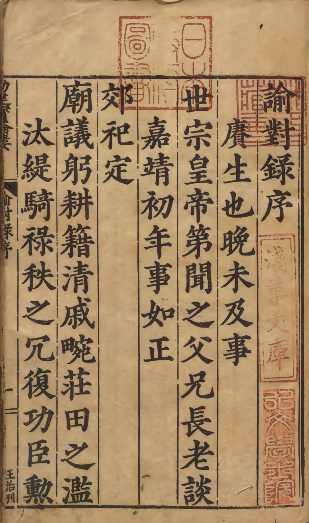 諭對錄序
賡生也晚未及事
世宗皇帝第聞之父兄長老談
嘉靖初年事如正
郊祀定
廟議躬耕籍清戚畹莊田之濫
汰緹騎祿秩之冗復功臣勲
諭對錄序
一
王治刊
淺草文庫